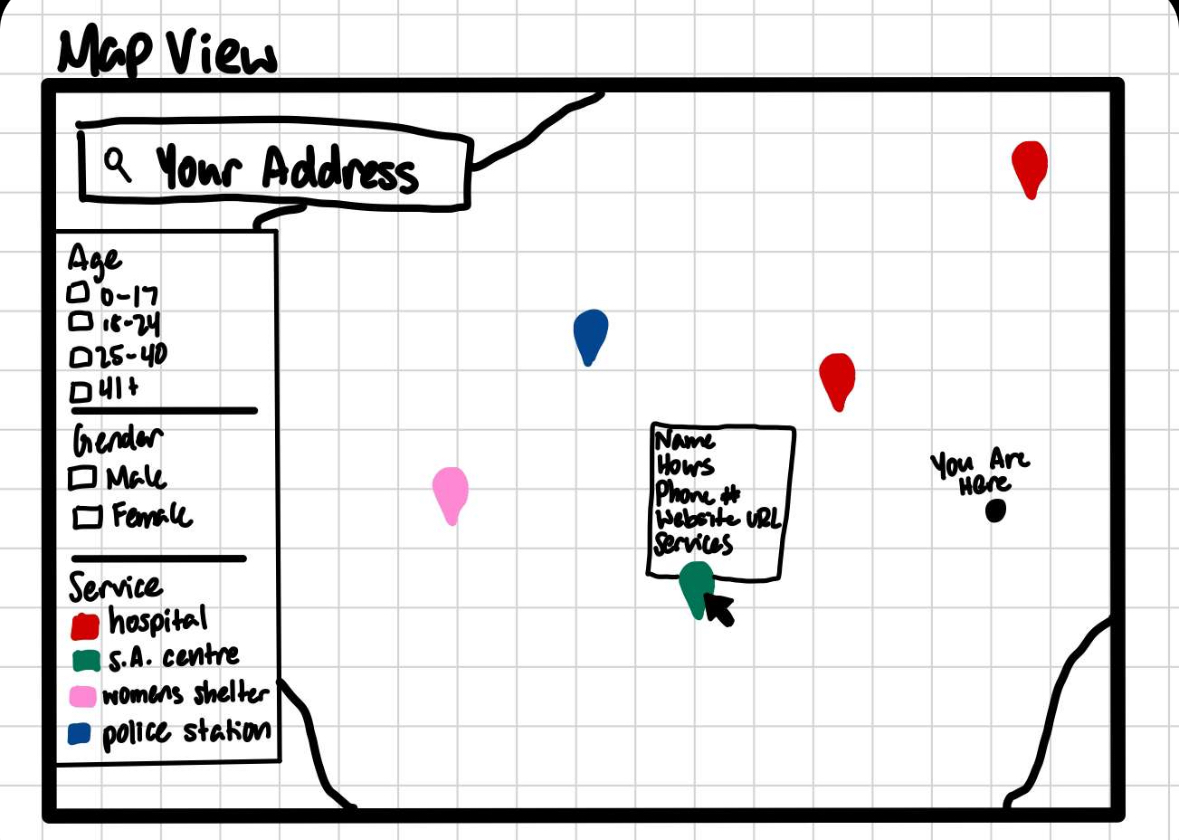 Map View
Your Address
Age
0-17
18-24
25-40
41+
Gender
Male
Female
Service
hospital
S.A. centre
womens shelter
police station
Name
Hours
Phone #
Website URL
Services
You Are
Here